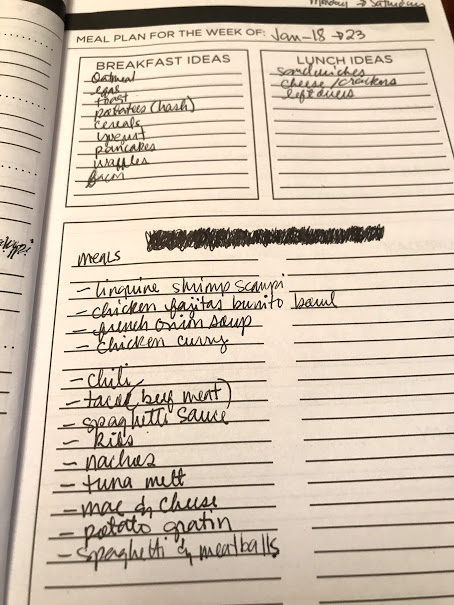 Monday → Saturday
MEAL PLAN FOR THE WEEK OF: Jan-18 → 23
BREAKFAST IDEAS
Oatmeal
eggs
toast
potatoes (hash)
cereals
yogurt
pancakes
waffles
bacon
LUNCH IDEAS
sandwiches
cheese/crackers
leftovers
meals
- linguine shrimp scampi
- chicken fajitas burrito bowl
- french onion soup
- chicken curry
- chili
- tacos (beef meat)
- spaghetti sauce
- ribs
- nachos
- tuna melt
- mac & cheese
- potato gratin
- spaghetti & meatballs